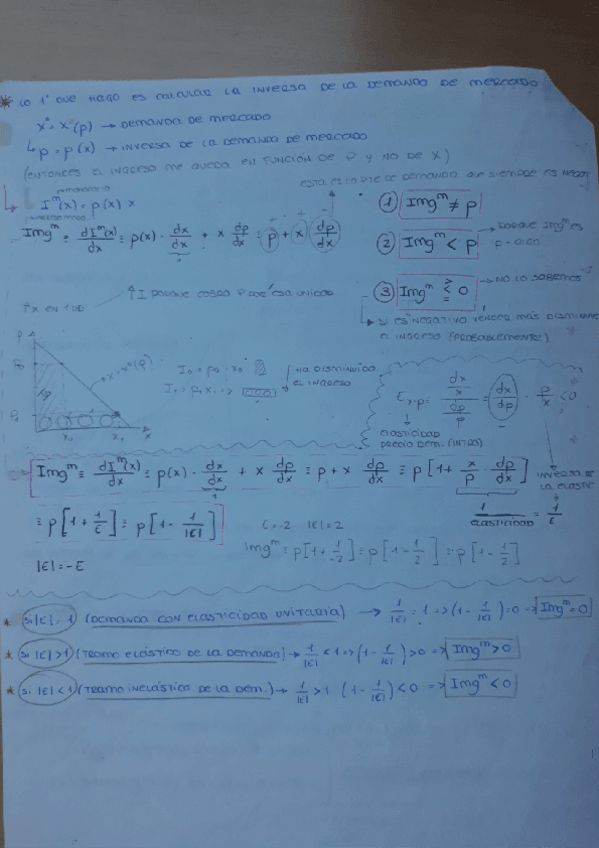 * LO 1º QUE HAGO ES CALCULAR LA INVERSA DE LA DEMANDA DE MERCADO
(p) → DEMANDA DE MERCADO
↳ p = p(x) → INVERSA DE LA DEMANDA DE MERCADO
(ENTONCES EL INGRESO ME QUEDA EN FUNCIÓN DE P Y NO DE X)
ESTA ES LA DE DEMANDA QUE SIEMPRE ES
↳ Iᵐ(x) = p(x) x
Imgᵐ ≡ dIᵐ(x)/dx ≡ p(x) · dx/dx + x dp/dx ≡ p + x dp/dx
① Imgᵐ ≠ p
② Imgᵐ < p → PORQUE Imgᵐ ES
p - ALGO
③ Imgᵐ ≷ 0 → NO LO SABEMOS
=
↳ SI ES NEGATIVO VENDER MÁS DISMINUYE
EL INGRESO (PROBABLEMENTE)
↑x EN 1 UD
↑I PORQUE COBRO P POR ESA UNIDAD
P
I₀ = p₀ x₀
I₁ = p₁ x₁ →
HA DISMINUIDO
EL INGRESO
x₀ x₁ x
εx-p = dx/x / dp/p = dx/dp · p/x < 0
ELASTICIDAD
PRECIO DEM.
Imgᵐ ≡ dIᵐ(x)/dx ≡ p(x) · dx/dx + x dp/dx ≡ p + x dp/dx ≡ p[1 + x/p · dp/dx]
INVERSA DE
LA ELASTIC
≡ p[1 + 1/ε] ≡ p[1 - 1/|ε|]
1/ELASTICIDAD = 1/ε
ε = -2 |ε| = 2
Imgᵐ ≡ p[1 + 1/-2] ≡ p[1 - 1/2] ≡ p[1 - 1/2]
|ε| = -ε
* Si |ε| = 1 (DEMANDA CON ELASTICIDAD UNITARIA) → 1/|ε| = 1 => (1 - 1/|ε|) = 0 => Imgᵐ = 0
* Si |ε| > 1 (TRAMO ELÁSTICO DE LA DEMANDA) → 1/|ε| < 1 => (1 - 1/|ε|) > 0 => Imgᵐ > 0
* Si |ε| < 1 (TRAMO INELÁSTICO DE LA DEM.) → 1/|ε| > 1 (1 - 1/|ε|) < 0 => Imgᵐ < 0